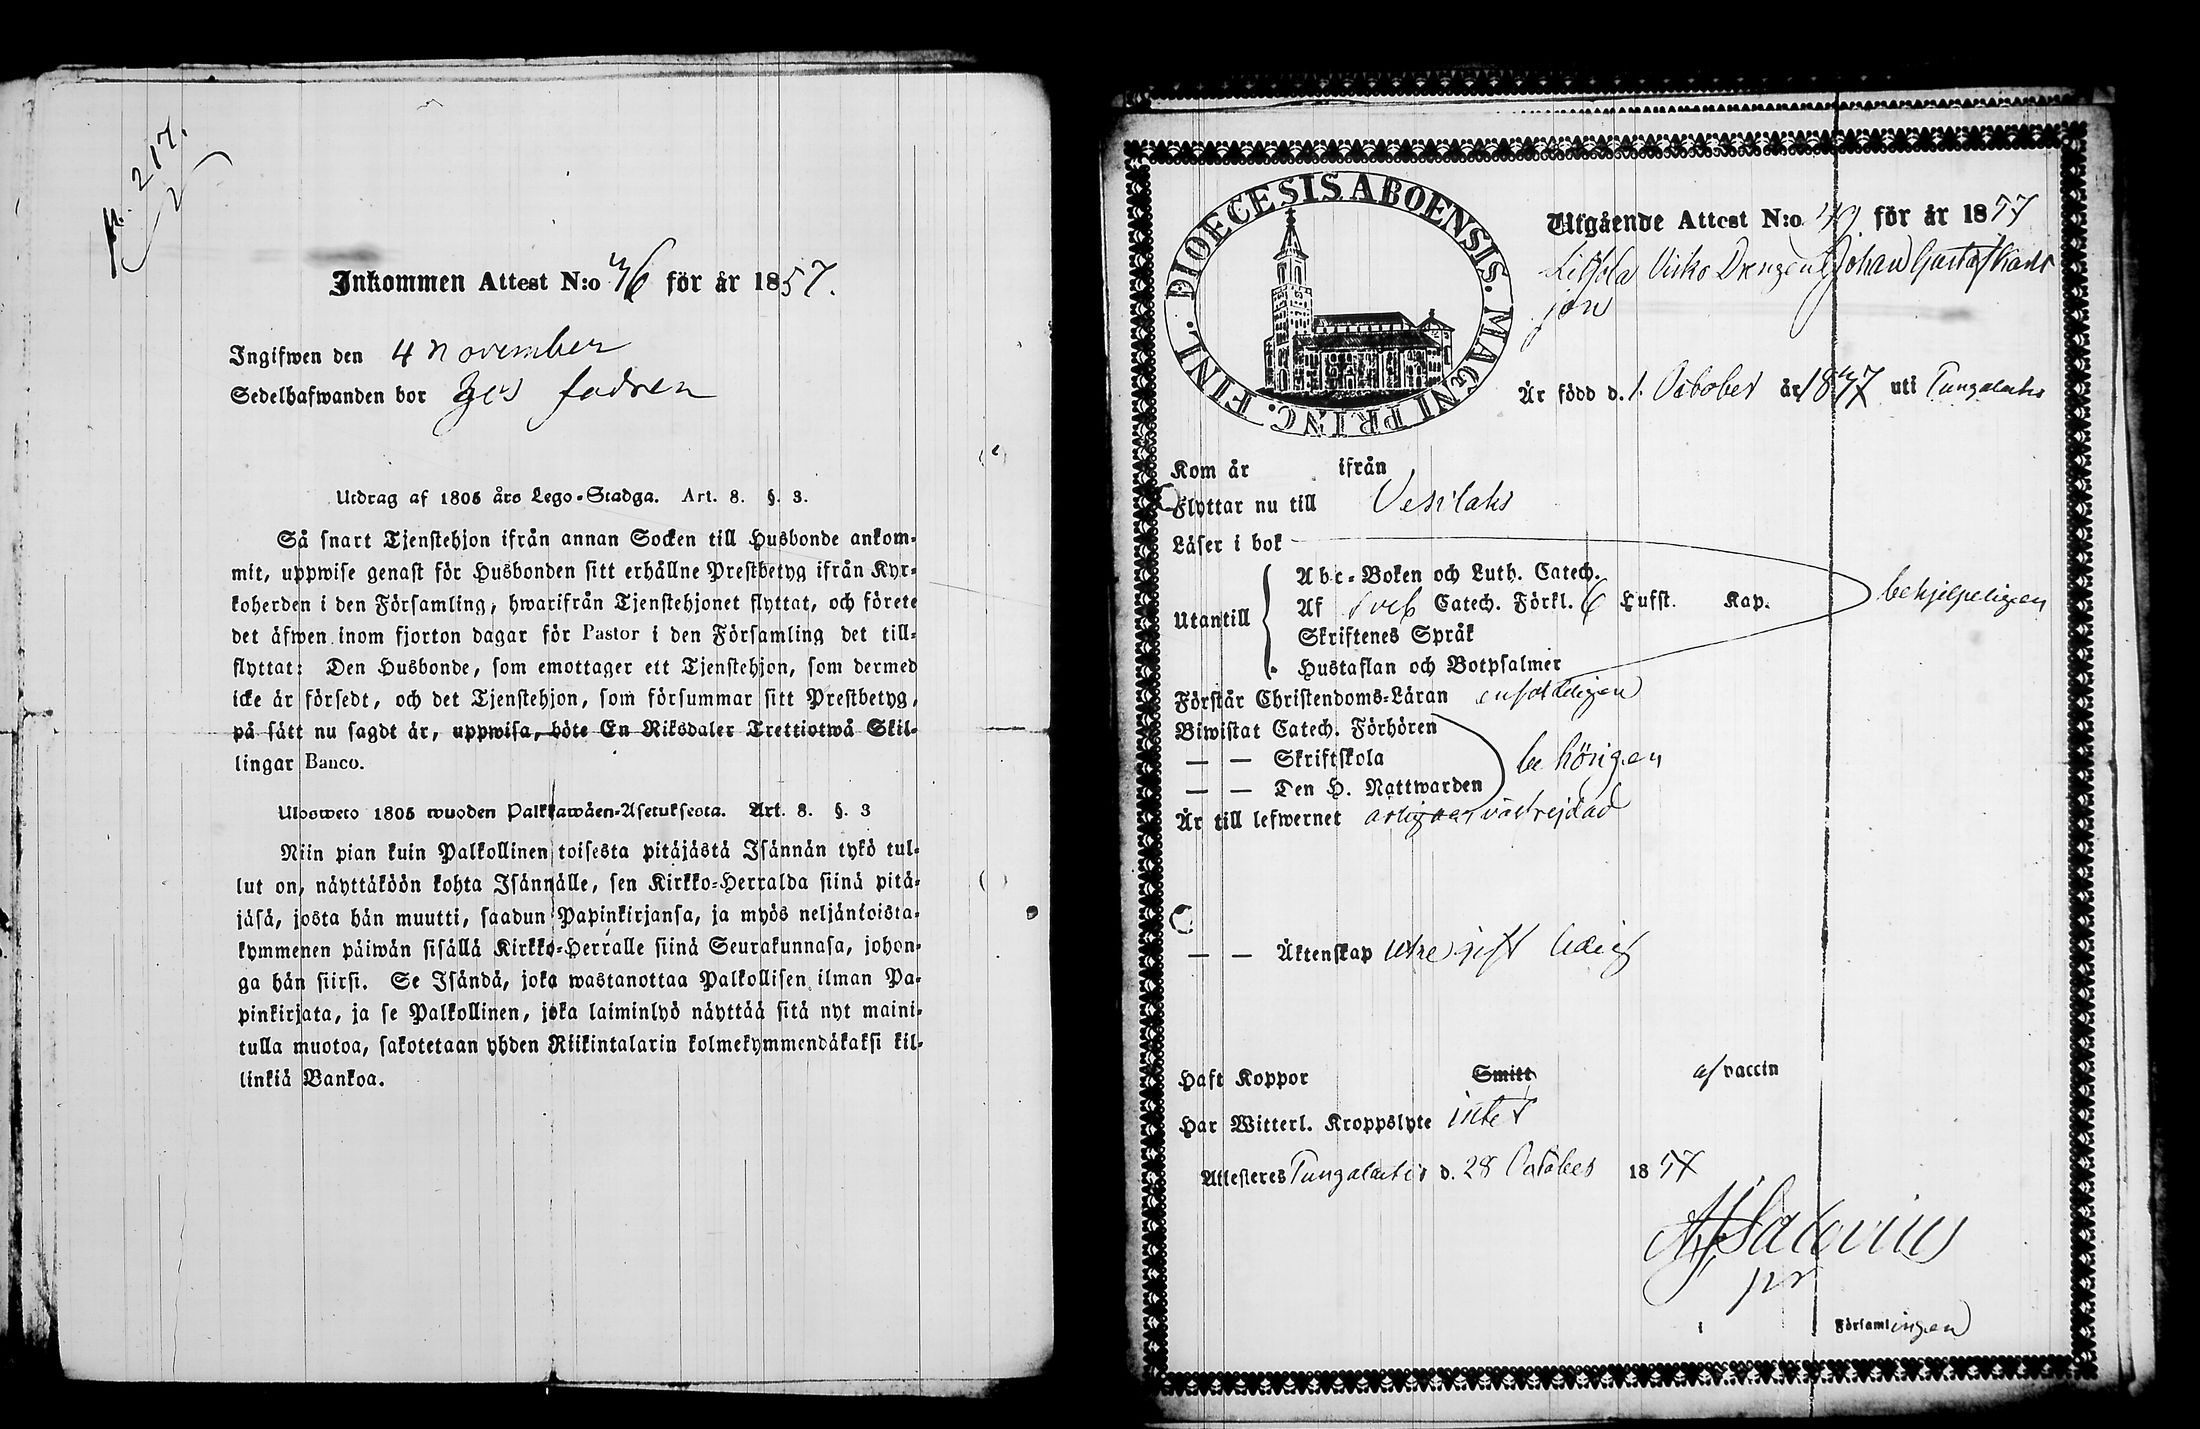 p. 217.
Inkommen Attest N:o 46 för år 1857.
Ingifwen den 4 November
Sedelhafwanden bor hos fadren
Utdrag af 1805 års Lego-Stadga. Art. 8. §. 3.
Så snart Tjenstehjon ifrån annan Socken till Husbonde ankom-
mit, uppwise genast för Husbonden sitt erhållne Prestbetyg ifrån Kyr-
koherden i den Församling, hwarifrån Tjenstehjonet flyttat, och förete
det äfwen inom fjorton dagar för Pastor i den Församling det till-
flyttat: Den Husbonde, som emottager ett Tjenstehjon, som dermed
icke är försedt, och det Tjenstehjon, som försummar sitt Prestbetyg,
på sätt nu sagdt är, uppwisa, böte En Riksdaler Trettiotwå Skil-
lingar Banco.
Ulosweto 1805 wuoden Palkkawäen-Asetuksesta. Art. 8. §. 3
Niin pian kuin Palkollinen toisesta pitäjästä Isännän tykö tul-
lut on, näyttäköön kohta Isännälle, sen Kirkko-Herralda siinä pitä-
jäsä, josta hän muutti, saadun Papinkirjansa, ja myös neljäntoista-
kymmenen päiwän sisällä Kirkko-Herralle siinä Seurakunnasa, johon-
ga hän siirsi. Se Isändä, joka wastanottaa Palkollisen ilman Pa-
pinkirjata, ja se Palkollinen, joka laiminlyö näyttää sitä nyt maini-
tulla muotoa, sakotetaan yhden Riikintalarin kolmekymmendäkaksi kil-
linkiä Bankoa.
DIOECESIS ABOENSIS. MAGNI PRINC. FINL.
Utgående Attest N:o 49 för år 1857
Drengen Johan Gustaf Karls
son
Är född d. 1. October år 1837 uti Pungalaitio
Kom år ifrån
Flyttar nu till Vesilaks
Läser i bok
Abc-Boken och Luth. Catech.
Utantill Af Sveb Catech. Förkl. 6 Hufst. Kap. behjelpeligen
Skriftenes Språk
Hustaflan och Botpsalmer
Förstår Christendoms-Läran enfaldeligen
Biwistat Catech. Förhören
— — Skriftskola behörigen
— — Den H. Nattwarden
Är till lefwernet
— — Äktenskap ledig
Haft Koppor Smitt af vaccin
Har Witterl. Kroppslyte intet
Attesteres Pungalaitio d. 28 October 1857
i Församlingen